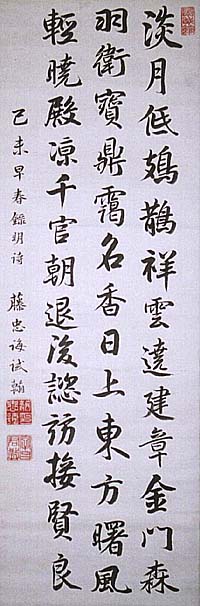 淡月低鳷鵲祥雲遶建章金門森
羽衛寶鼎靄名香日上東方曙風
輕曉殿凉千官朝退後諮訪接賢良
己未早春錄明诗 藤忠诲试翰